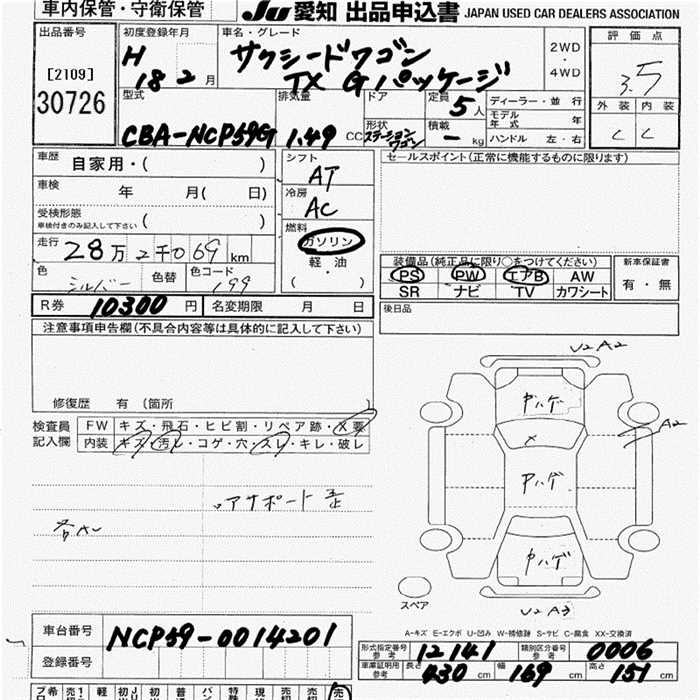 車内保管・守衛保管 Ju 愛知 出品申込書 JAPAN USED CAR DEALERS ASSOCIATION
出品番号 初度登録年月 車名・グレード 2WD・4WD 評価点
[2109] H 18 2 月 サクシードワゴン 3.5
30726 TX Gパッケージ 外装 内装
型式 排気量 ドア 定員 5人 ディーラー・並行 C C
CBA-NCP59G 1.49 CC 形状 ステーションワゴン 積載 - kg モデル年式 年
ハンドル 左・右
車歴 自家用・( ) シフト AT セールスポイント(正常に機能するものに限ります)
車検 年 月( 日) 冷房 AC
受検形態 ( )
車検付きのみ記入して下さい
燃料 ガソリン
軽・油
( )
走行 28万2千069km
色 シルバー 色替 色コード 199
装備品(純正品に限り○をつけてください) 新車保証書
PS PW エアB AW 有・無
SR ナビ TV カワシート
R券 10300円 名変期限 月 日 後日品
注意事項申告欄(不具合内容等は具体的に記入して下さい)
修復歴 有 (箇所 )
検査員記入欄 FW キズ・飛石・ヒビ割・リペア跡・X要
内装 キズ・汚レ・コゲ・穴・スレ・キレ・破レ
U2 A2
A2
U2 A3
スペア
A-キズ E-エクボ U-凹み W-補修跡 S-サビ C-腐食 XX-交換済
車台番号 NCP59-0014201
登録番号
形式指定番号 参考 12141 類別区分番号 参考 0006
車庫証明用 参考 長さ 430 cm 幅 169 cm 高さ 151 cm